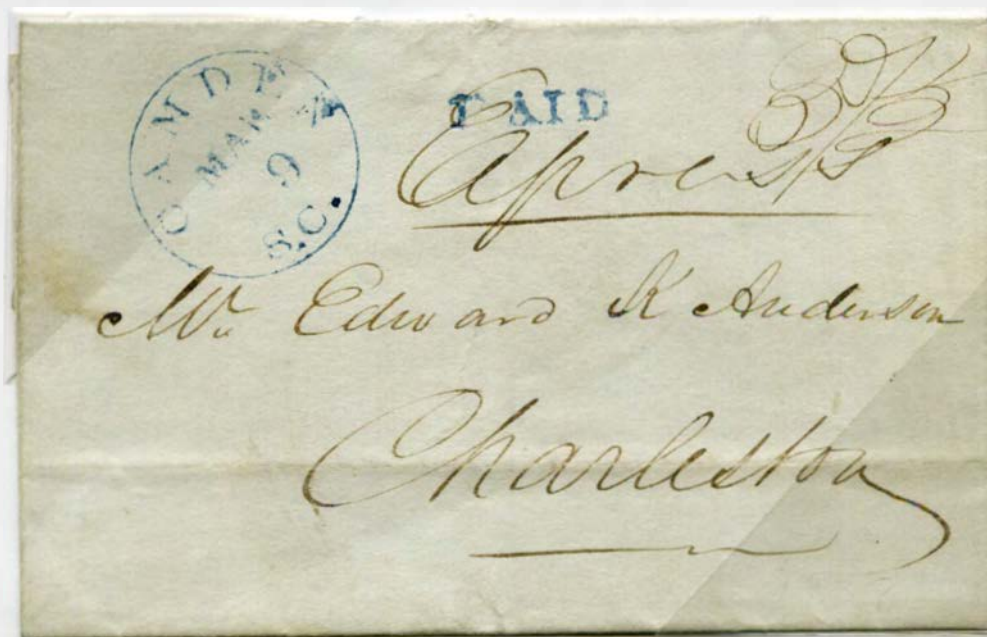 CAMDEN
MAR
9
S.C.
PAID
Express
Mr. Edward K Anderson
Charleston